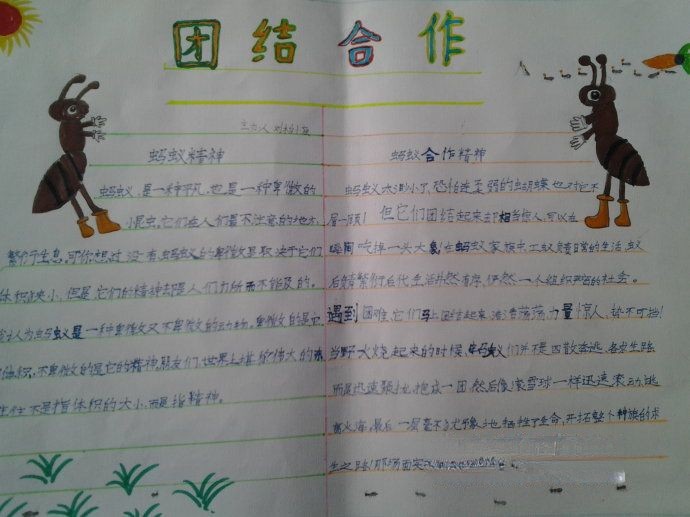 团结合作
主办人
蚂蚁精神
蚂蚁,是一种平凡,也是一种卑微的
小昆虫,它们在人们最不注意的地方,
繁衍生息,可你想过没有蚂蚁的卑微是取决于它们
体积微小,但是它们的精神却是人们力所而不能及的。
认为蚂蚁是一种卑微又不卑微的动物,卑微的是它
体积,不卑微的是它的精神,朋友们,世界上堪称伟大的
往往不是指体积的大小,而是指精神。
蚂蚁合作精神
蚂蚁太渺小了,恐怕连柔弱的蝴蝶也对它不
屑一顾!但它们团结起来却相当惊人,可以在
瞬间吃掉一头大象,在蚂蚁家族中工蚁负责日常的生活,蚁
后负责繁衍后代生活井然有序,俨然一个组织严密的社会。
遇到困难,它们马上团结起来浩浩荡荡,力量惊人,势不可挡!
当野火烧起来的时候,蚂蚁们并不是四散奔逃,各寻生路
而是迅速聚拢,抱成一团,然后像滚雪球一样迅速滚动,逃
离火海,最后一层毫不犹豫地牺牲了生命,开拓整个种族的求
生之路!那场面实